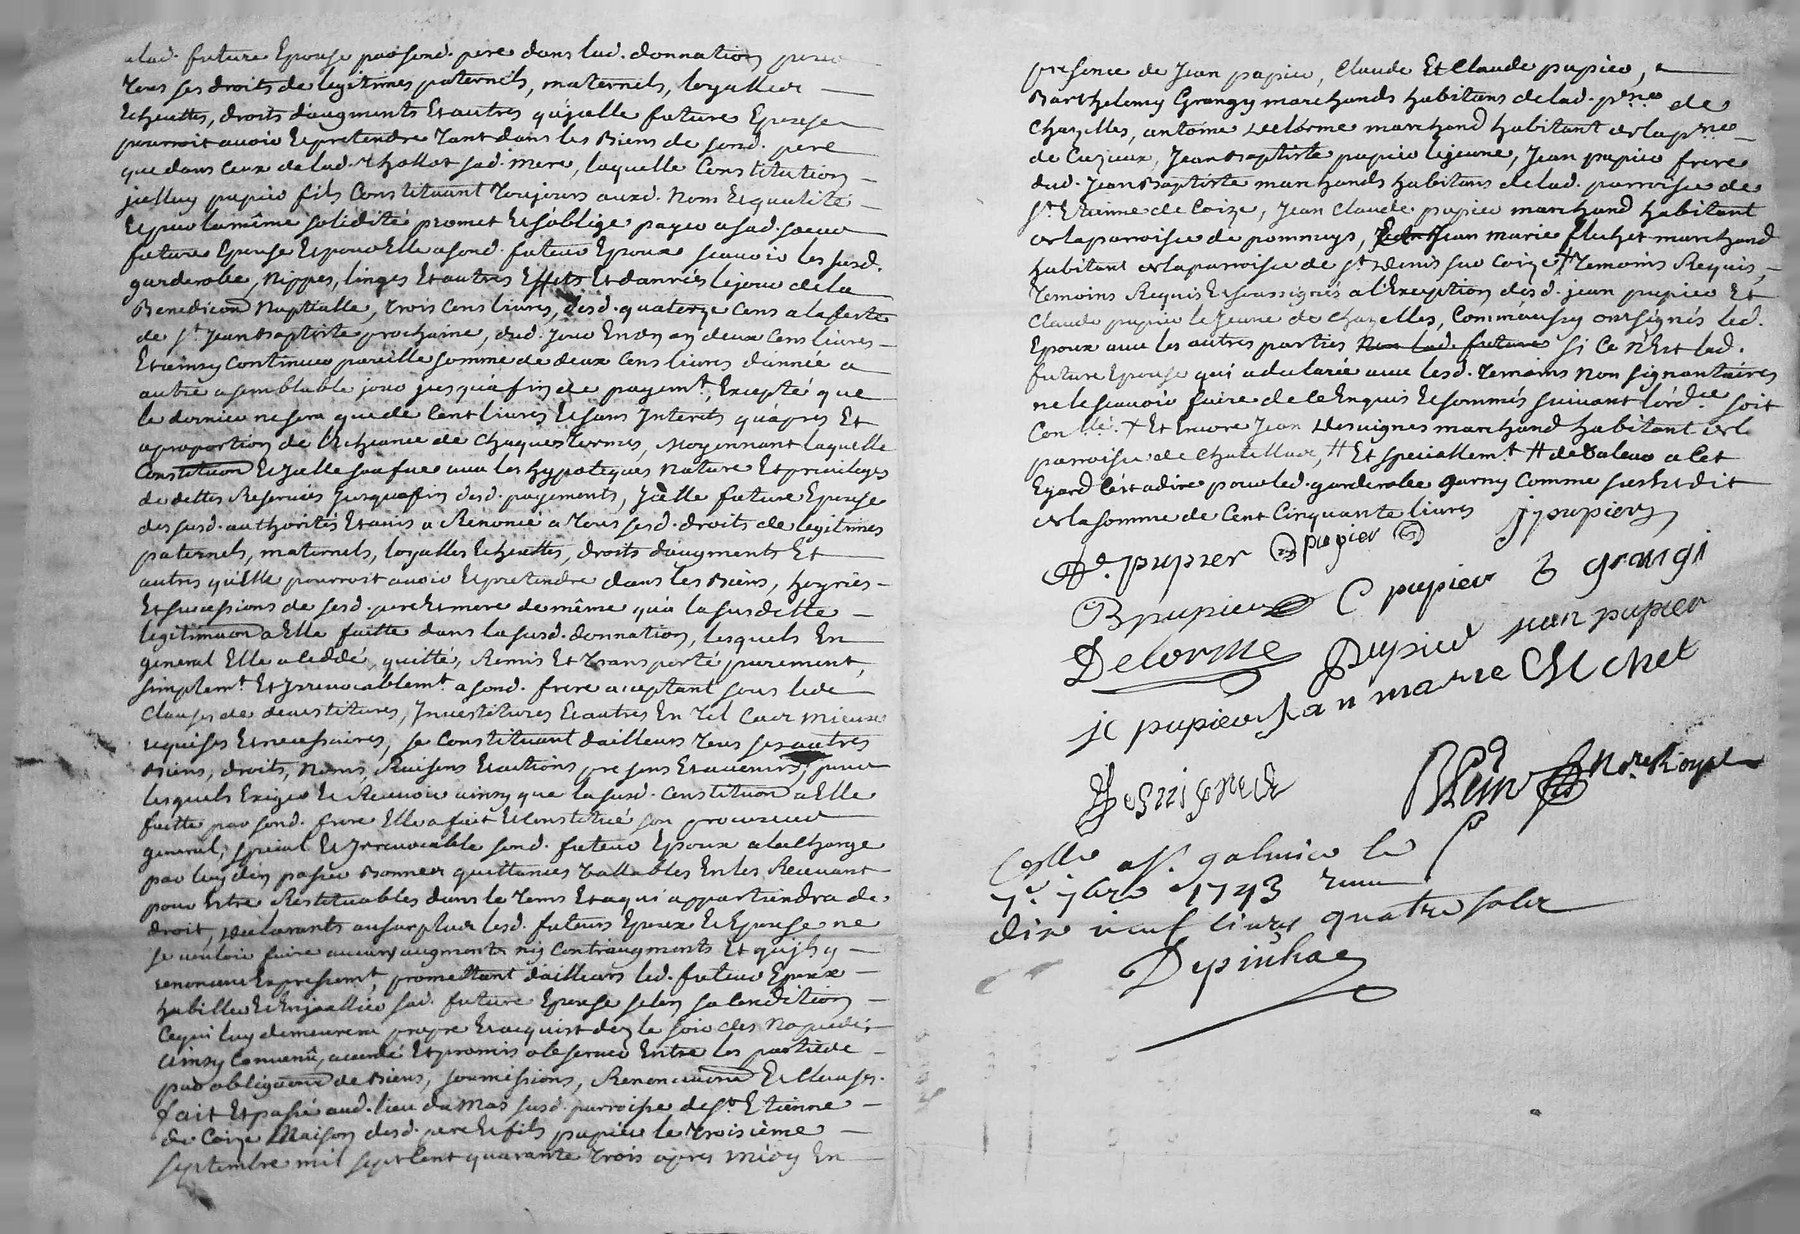 alad. future Epouse par sond. pere dans lad. donnation, pour
tous ses droits de legitimes paternels, maternels, loyalles
Echeuttes, droits daugments Et autres qu'jcelle future Epouse
pourroit avoir Et pretendre tant dans les Biens de sond. pere
que dans ceux de lad. thollot sad. mere, laquelle Constitution
jcelluy pupier fils Constituant toujours auxd. Nom Et qualité
Et par la même solidité promet Et s'oblige payer a sad. soeur
future Epouse Et pour Elle a sond. futeur Epoux scavoir les susd.
garderobe, Nippes, linges Et autres Effets Et danrrés le jour de la
Benediction Nuptialle, trois cens livres, desd. quatorze cens a la feste
de st. Jean Baptiste prochaine, dud. jour En un an deux Cens livres
Et ainsy Continuer pareille somme de deux Cens livres d'année a
autre a semblable jour jusqu'a fin de payemt. Excepté que
le dernier ne sera que de Cent livres Et sans Interets qu'apres Et
a proportion de l'Echeance de Chaques termes, Moyennant laquelle
Constitution Et jcelle sauve avec les hypoteques Nature Et privileges
de dettes Reservés Jusqu'a fin desd. payements, jcelle future Epouse
des susd. authorités Et avis a Renoncé a tous sesd. droits de legitimes
paternels, maternels, loyalles Echeuttes, droits daugments Et
autres qu'Elle pourroit avoir Et pretendre dans les Biens, hoyries
Et successions de sesd. pere Et mere de même qu'a la susditte
legitimation a Elle faitte dans la susd. donnation, lesquels En
general Elle a ceddé, quitté, Remis Et transporté purement,
simplemt. Et Irrevocablemt. a sond. frere acceptant sous les
Clauses de devestitures, Investitures Et autres En tel Cas mieux
requises Et necessaires, se Constituant d'ailleurs tous ses autres
Biens, droits, Noms, Raisons Et actions presens Et avenirs, pour
lesquels Exiger Et Recevoir ainsy que la susd. Constitution a Elle
faitte par sond. frere Elle a fait Et Constitué son procureur
general, special Et Irrevocable sond. futeur Epoux a la Charge
par luy d'En passer Bonnes quittances vallables En les Recevant
pour Estre Restituables dans le tems Et a qui appartiendra de
droit, declarants au surplus lesd. futeurs Epoux Et Epouse ne
se vouloir faire aucuns augments ny contraugments Et qu'jls y
renoncent Expressemt. promettant d'ailleurs led. futeur Epoux
habiller Et Enjoallier sad. future Epouse selon sa Condition
Ce qui luy demeurera propre Et acquist dez le soir des Nopces;
ainsy Convenû, accordé Et promis observer Entre les parties
par obligation de Biens, soumissions, Renonciation Et Clauses.
fait Et passé aud. lieu du Mas susd. parroisse de st. Etienne
de Coize Maison desd. pere Et fils pupier le troisième
septembre mil sept Cent quarante trois apres midy En
presence de Jean pupier, Claude Et Claude pupier,
Barthelemy Grangy marchands habitans de lad. psse. de
Chazelles, antoine Delorme marchand habitant de la psse.
de Cuzieux, Jean Baptiste pupier le jeune, Jean pupier frere
dud. Jean Baptiste marchands habitans de lad. parroisse de
st. Etienne de Coize, Jean Claude pupier marchand habitant
de la parroisse de pommeys, Jean marie Clechet marchand
habitant de la parroisse de st. Denis sur Coize + temoins Requis,
temoins Requis Et soussignés a l'Exception desd. jean pupier Et
Claude pupier le jeune de Chazelles, Comm'aussy ont signés led.
Epoux avec les autres parties Non lad. future si ce n'Est lad.
future Epouse qui a declarée avec lesd. temoins Non signantaires
ne le scavoir faire de ce Enquis Et sommés suivant l'ordce. soit
Conllé. + Et Encore Jean Desvignes marchand habitant de la
parroisse de Chatellus, # Et speciallemt. # de valeur a Cet
Egard c'est a dire pour led. garderobe garny Comme susd. Est dit
de la somme de Cent Cinquante livres
j pupier
D. pupier pupier
B pupier C pupier B grangi
Delorme pupier jean pupier
jc pupier Jean marie Clechet
Desvignes
Nre. Royal
Collé a st. galmier le
7e. 7bre 1743
dix neuf livres quatre sols
Depinhac